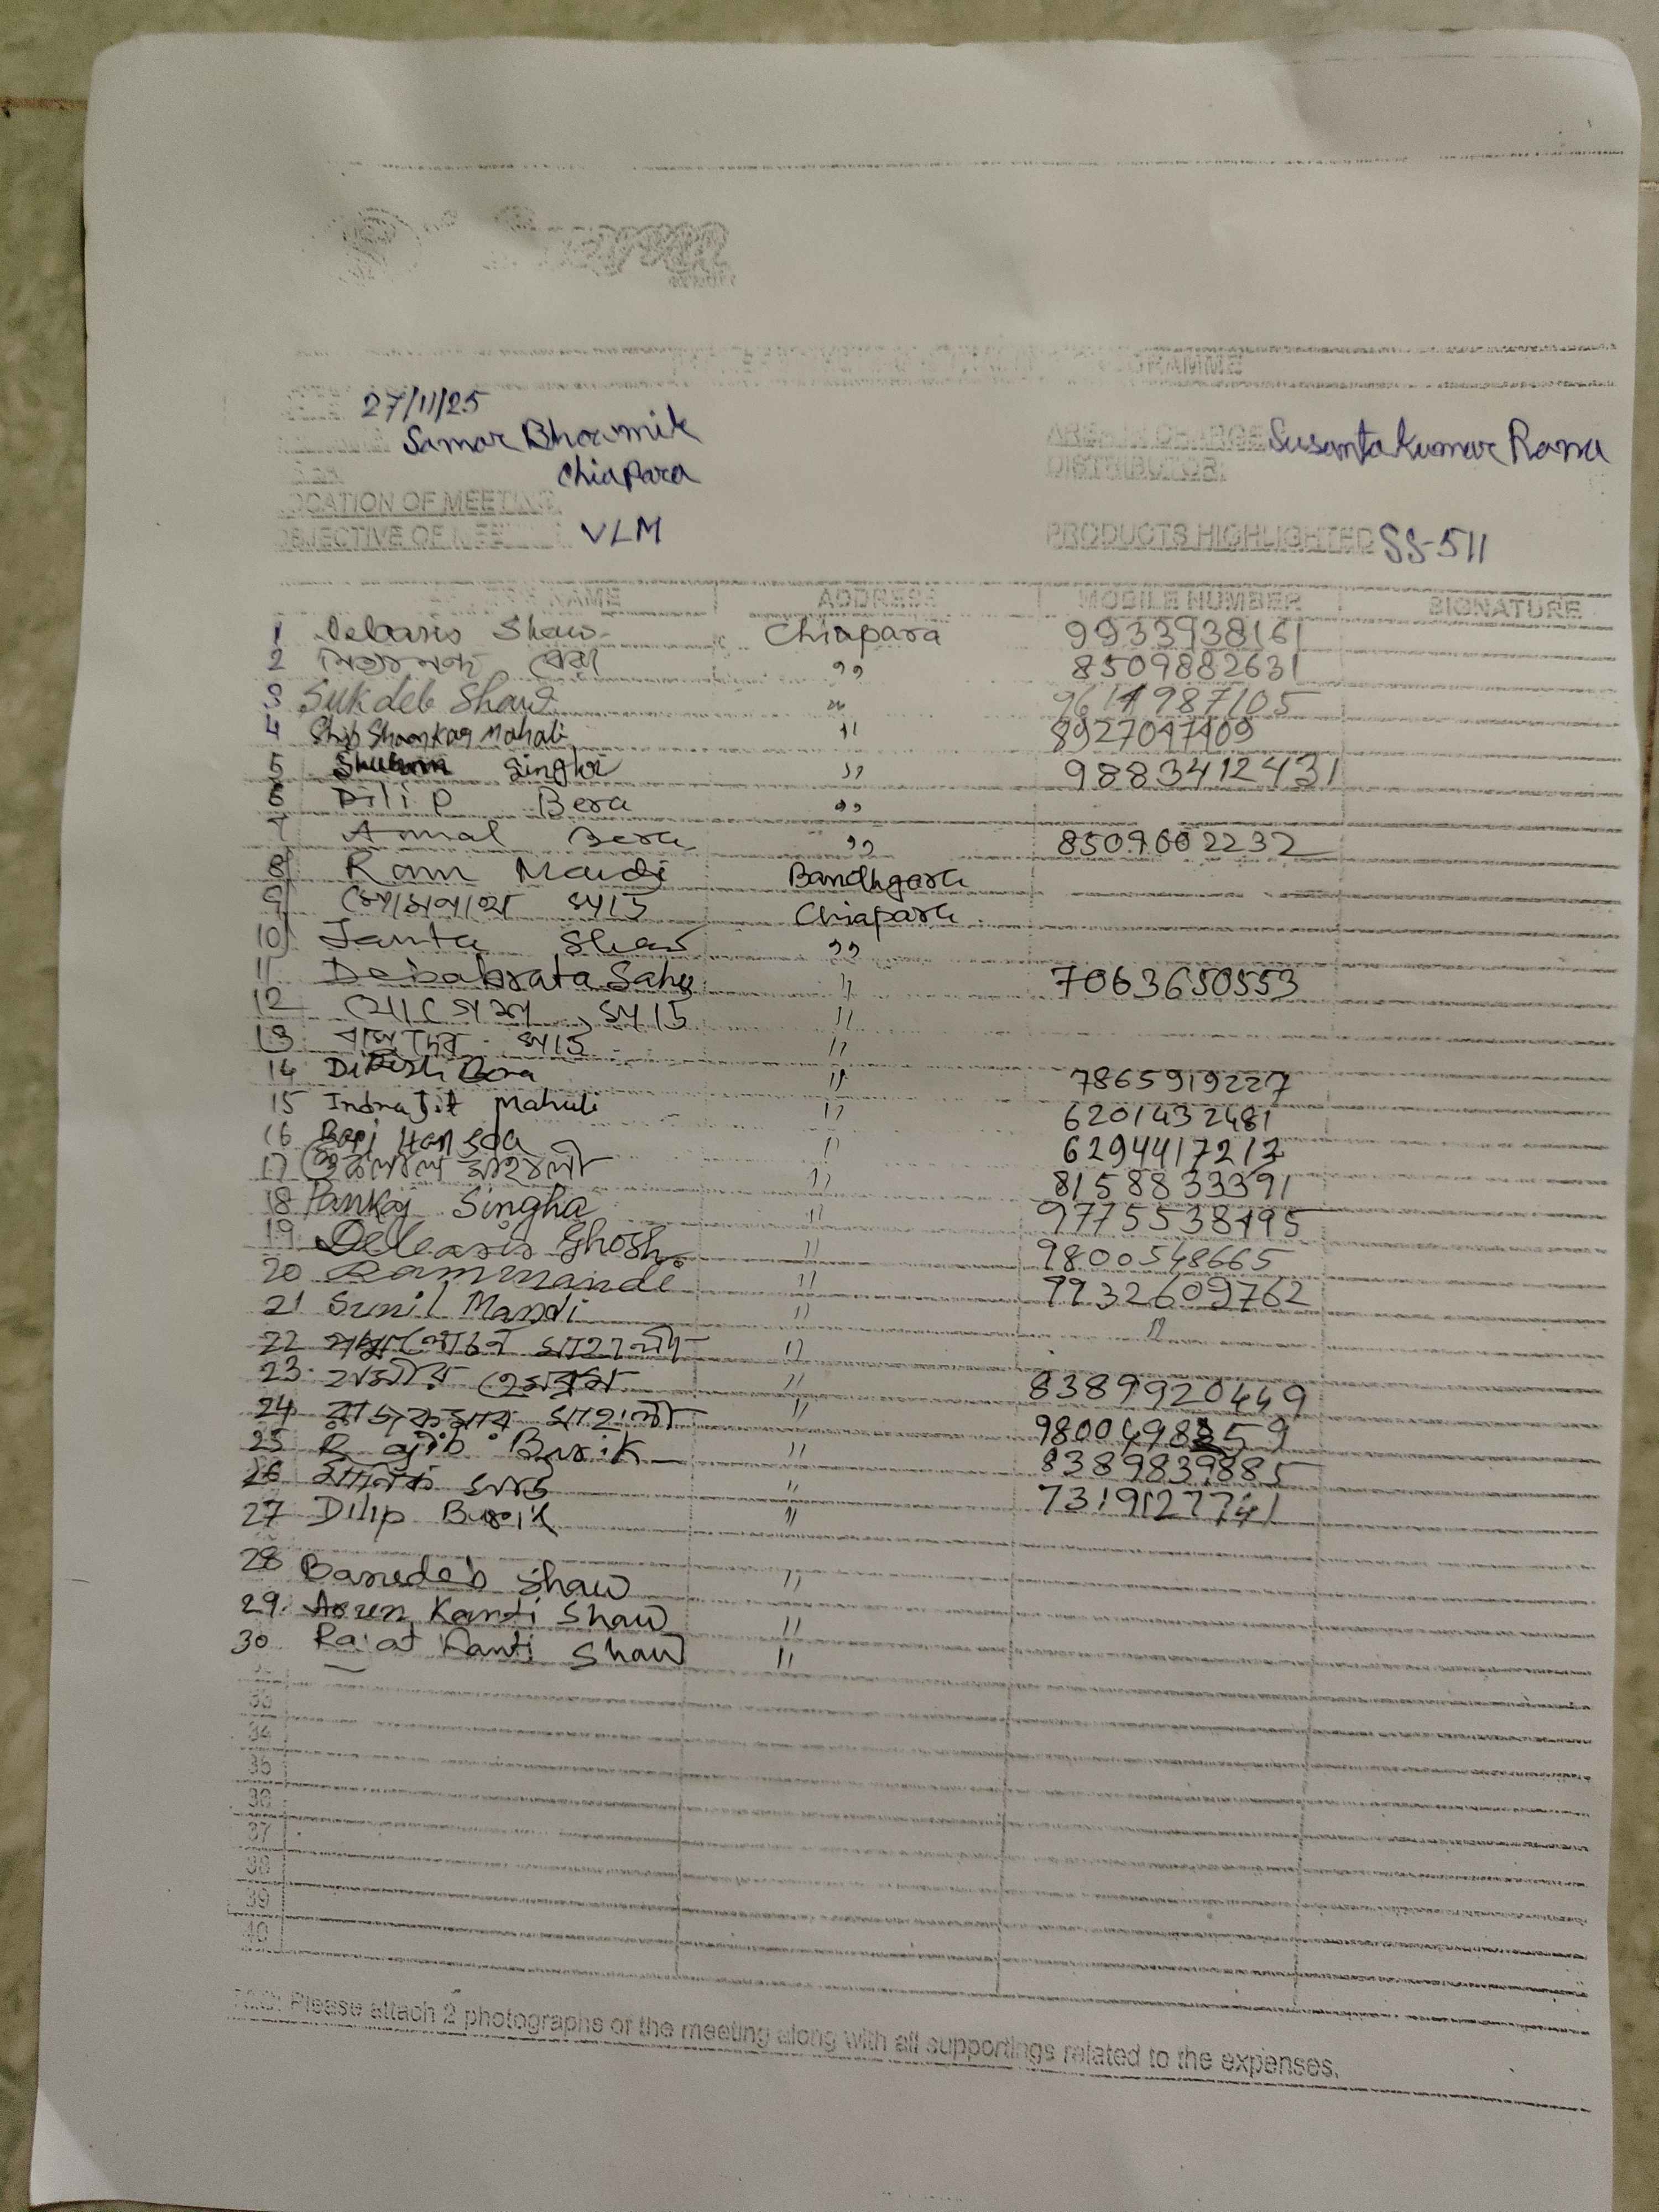 27/11/25
Samar Bhowmik
AREA IN CHARGE Susanta Kumar Rana
Chiapara
DISTRIBUTOR:
LOCATION OF MEETING
OBJECTIVE OF VLM
PRODUCTS HIGHLIGHTED SS-511
NAME ADDRESS MOBILE NUMBER SIGNATURE
1 Debasis Shaw Chiapara 9933938161
2 " 8509882631
3 Sukdeb Shaw " 9614987105
4 Shib Shankar Mahali " 8927047409
5 Singha " 9883412431
6 Dilip Bera "
7 Amal Bera " 8509602232
8 Ram Mandi Bandhgora
9 সোমনাথ সাউ Chiapara
10 Shaw "
11 Debabrata Sahu " 7063650553
12 সাউ "
13 বাসুদেব সাউ "
14 Bera " 7865919227
15 Indrajit Mahali " 6201432481
16 Bapi Hansda " 6294417213
17 মাহালী " 8158833391
18 Pankaj Singha " 9775538495
19 Debasis Ghosh " 9800548665
20 Ram Mandi " 7732609762
21 Sunil Mandi " "
22 পদ্মলোচন মাহালী "
23 সমীর হেমব্রম " 8389920449
24 রাজকুমার মাহালী " 9800498359
25 Rajib Burik " 8389839885
26 মানিক সাউ " 7319127741
27 Dilip Burik "
28 Basudeb Shaw "
29 Asun Kanti Shaw "
30 Rajat Kanti Shaw "
33
34
35
36
37
38
39
40
N.B: Please attach 2 photographs of the meeting along with all supportings related to the expenses.